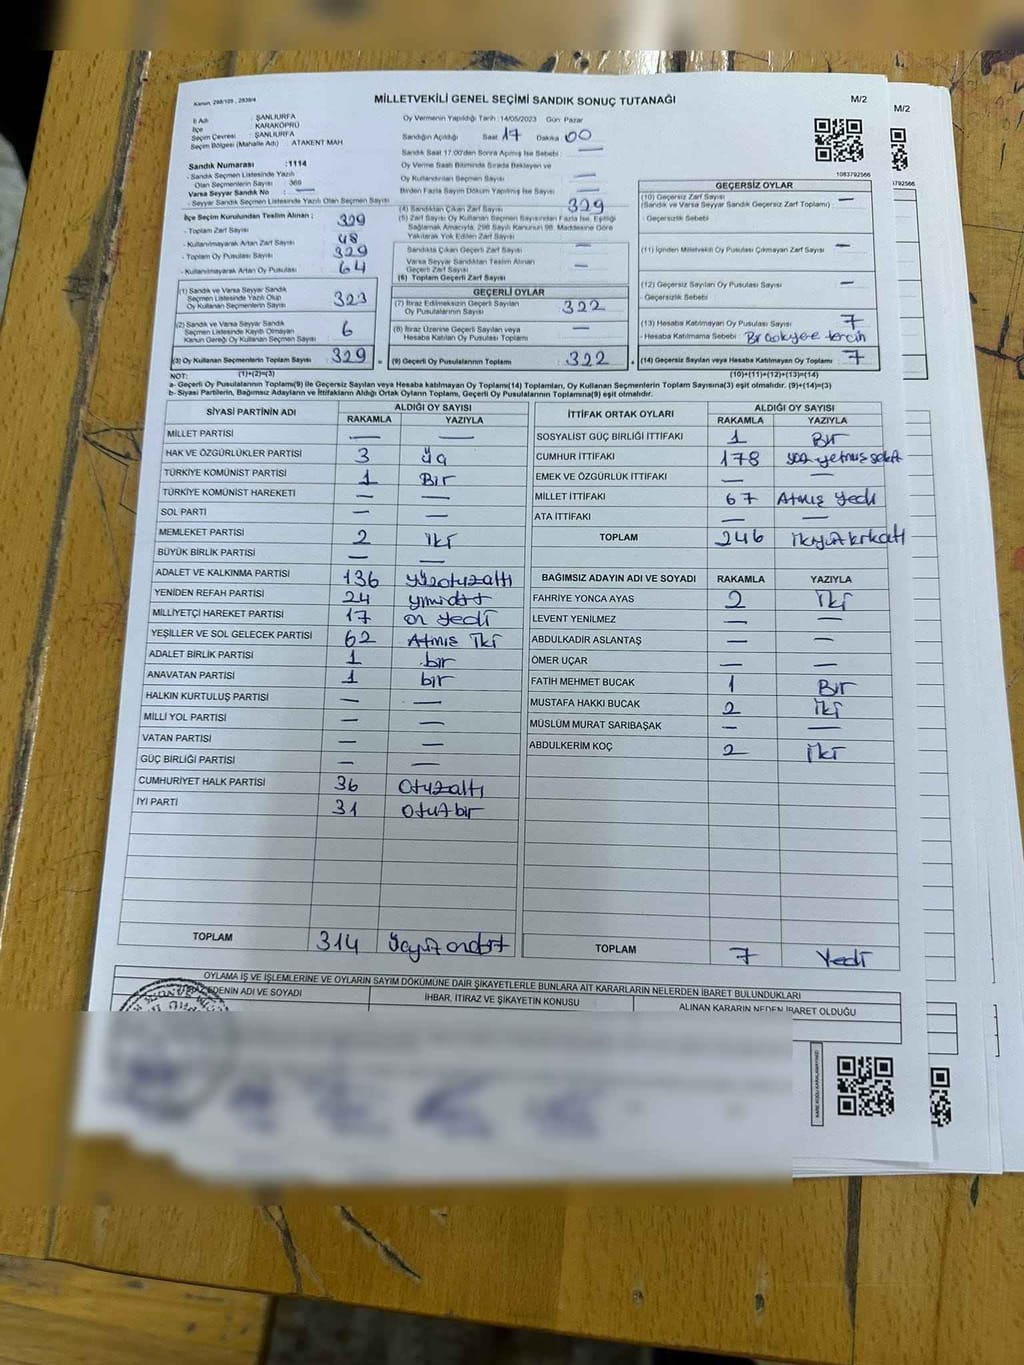 Kanun, 298/105 , 2839/4
MİLLETVEKİLİ GENEL SEÇİMİ SANDIK SONUÇ TUTANAĞI
M/2
M/2
İl Adı : ŞANLIURFA
İlçe : KARAKÖPRÜ
Seçim Çevresi : ŞANLIURFA
Seçim Bölgesi (Mahalle Adı) : ATAKENT MAH
Sandık Numarası :1114
- Sandık Seçmen Listesinde Yazılı
Olan Seçmenlerin Sayısı : 369
Varsa Seyyar Sandık No : —
- Seyyar Sandık Seçmen Listesinde Yazılı Olan Seçmenlerin Sayısı
İlçe Seçim Kurulundan Teslim Alınan ;
- Toplam Zarf Sayısı 329
- Kullanılmayarak Artan Zarf Sayısı 48
- Toplam Oy Pusulası Sayısı 329
- Kullanılmayarak Artan Oy Pusulası 64
(1) Sandık ve Varsa Seyyar Sandık
Seçmen Listesinde Yazılı Olup
Oy Kullanan Seçmenlerin Sayısı 323
(2) Sandık ve Varsa Seyyar Sandık
Seçmen Listesinde Kayıtlı Olmayan
Kanun Gereği Oy Kullanan Seçmen Sayısı 6
(3) Oy Kullanan Seçmenlerin Toplam Sayısı : 329 =
Oy Vermenin Yapıldığı Tarih : 14/05/2023 Gün: Pazar
Sandığın Açıldığı Saat 17 Dakika 00
Sandık Saat 17:00'den Sonra Açılmış İse Sebebi : —
Oy Verme Saati Bitiminde Sırada Bekleyen ve
Oy Kullandırılan Seçmen Sayısı —
Birden Fazla Sayım Döküm Yapılmış İse Sayısı —
(4) Sandıktan Çıkan Zarf Sayısı 329
(5) Zarf Sayısı Oy Kullanan Seçmen Sayısından Fazla İse, Eşitliği
Sağlamak Amacıyla, 298 Sayılı Kanunun 98. Maddesine Göre
Yakılarak Yok Edilen Zarf Sayısı
Sandıkta Çıkan Geçerli Zarf Sayısı —
Varsa Seyyar Sandıktan Teslim Alınan
Geçerli Zarf Sayısı —
(6) Toplam Geçerli Zarf Sayısı
GEÇERLİ OYLAR
(7) İtiraz Edilmeksizin Geçerli Sayılan
Oy Pusulalarının Sayısı : 322
(8) İtiraz Üzerine Geçerli Sayılan veya
Hesaba Katılan Oy Pusulaları Toplamı : —
(9) Geçerli Oy Pusulalarının Toplamı : 322 +
1083792566
GEÇERSİZ OYLAR
(10) Geçersiz Zarf Sayısı
(Sandık ve Varsa Seyyar Sandık Geçersiz Zarf Toplamı) : —
- Geçersizlik Sebebi :
(11) İçinden Milletvekili Oy Pusulası Çıkmayan Zarf Sayısı : —
(12) Geçersiz Sayılan Oy Pusulası Sayısı : —
Geçersizlik Sebebi :
(13) Hesaba Katılmayan Oy Pusulası Sayısı : 7
- Hesaba Katılmama Sebebi : tercih
(14) Geçersiz Sayılan veya Hesaba Katılmayan Oy Toplamı : 7
NOT: (1)+(2)=(3) (10)+(11)+(12)+(13)=(14)
a- Geçerli Oy Pusulalarının Toplamı(9) ile Geçersiz Sayılan veya Hesaba katılmayan Oy Toplamı(14) Toplamları, Oy Kullanan Seçmenlerin Toplam Sayısına(3) eşit olmalıdır. (9)+(14)=(3)
b- Siyasi Partilerin, Bağımsız Adayların ve İttifakların Aldığı Ortak Oyların Toplamı, Geçerli Oy Pusulalarının Toplamına(9) eşit olmalıdır.
SİYASİ PARTİNİN ADI ALDIĞI OY SAYISI
RAKAMLA YAZIYLA
MİLLET PARTİSİ — —
HAK VE ÖZGÜRLÜKLER PARTİSİ 3 üç
TÜRKİYE KOMÜNİST PARTİSİ 1 Bir
TÜRKİYE KOMÜNİST HAREKETİ — —
SOL PARTİ — —
MEMLEKET PARTİSİ 2 iki
BÜYÜK BİRLİK PARTİSİ — —
ADALET VE KALKINMA PARTİSİ 136 yüzotuzaltı
YENİDEN REFAH PARTİSİ 24 yirmidört
MİLLİYETÇİ HAREKET PARTİSİ 17 on yedi
YEŞİLLER VE SOL GELECEK PARTİSİ 62 Atmış iki
ADALET BİRLİK PARTİSİ 1 bir
ANAVATAN PARTİSİ 1 bir
HALKIN KURTULUŞ PARTİSİ — —
MİLLİ YOL PARTİSİ — —
VATAN PARTİSİ — —
GÜÇ BİRLİĞİ PARTİSİ — —
CUMHURİYET HALK PARTİSİ 36 Otuzaltı
İYİ PARTİ 31 Otuzbir
TOPLAM 314 üçyüz ondört
İTTİFAK ORTAK OYLARI ALDIĞI OY SAYISI
RAKAMLA YAZIYLA
SOSYALİST GÜÇ BİRLİĞİ İTTİFAKI 1 Bir
CUMHUR İTTİFAKI 178 yüz yetmiş sekiz
EMEK VE ÖZGÜRLÜK İTTİFAKI — —
MİLLET İTTİFAKI 67 Atmış yedi
ATA İTTİFAKI — —
TOPLAM 246 ikiyüz kırkaltı
BAĞIMSIZ ADAYIN ADI VE SOYADI RAKAMLA YAZIYLA
FAHRİYE YONCA AYAS 2 İki
LEVENT YENİLMEZ — —
ABDULKADİR ASLANTAŞ — —
ÖMER UÇAR — —
FATİH MEHMET BUCAK 1 Bir
MUSTAFA HAKKI BUCAK 2 İki
MÜSLÜM MURAT SARIBAŞAK — —
ABDULKERİM KOÇ 2 İki
TOPLAM 7 Yedi
OYLAMA İŞ VE İŞLEMLERİNE VE OYLARIN SAYIM DÖKÜMÜNE DAİR ŞİKAYETLERLE BUNLARA AİT KARARLARIN NELERDEN İBARET BULUNDUKLARI
EDENİN ADI VE SOYADI İHBAR, İTİRAZ VE ŞİKAYETİN KONUSU ALINAN KARARIN NEDEN İBARET OLDUĞU